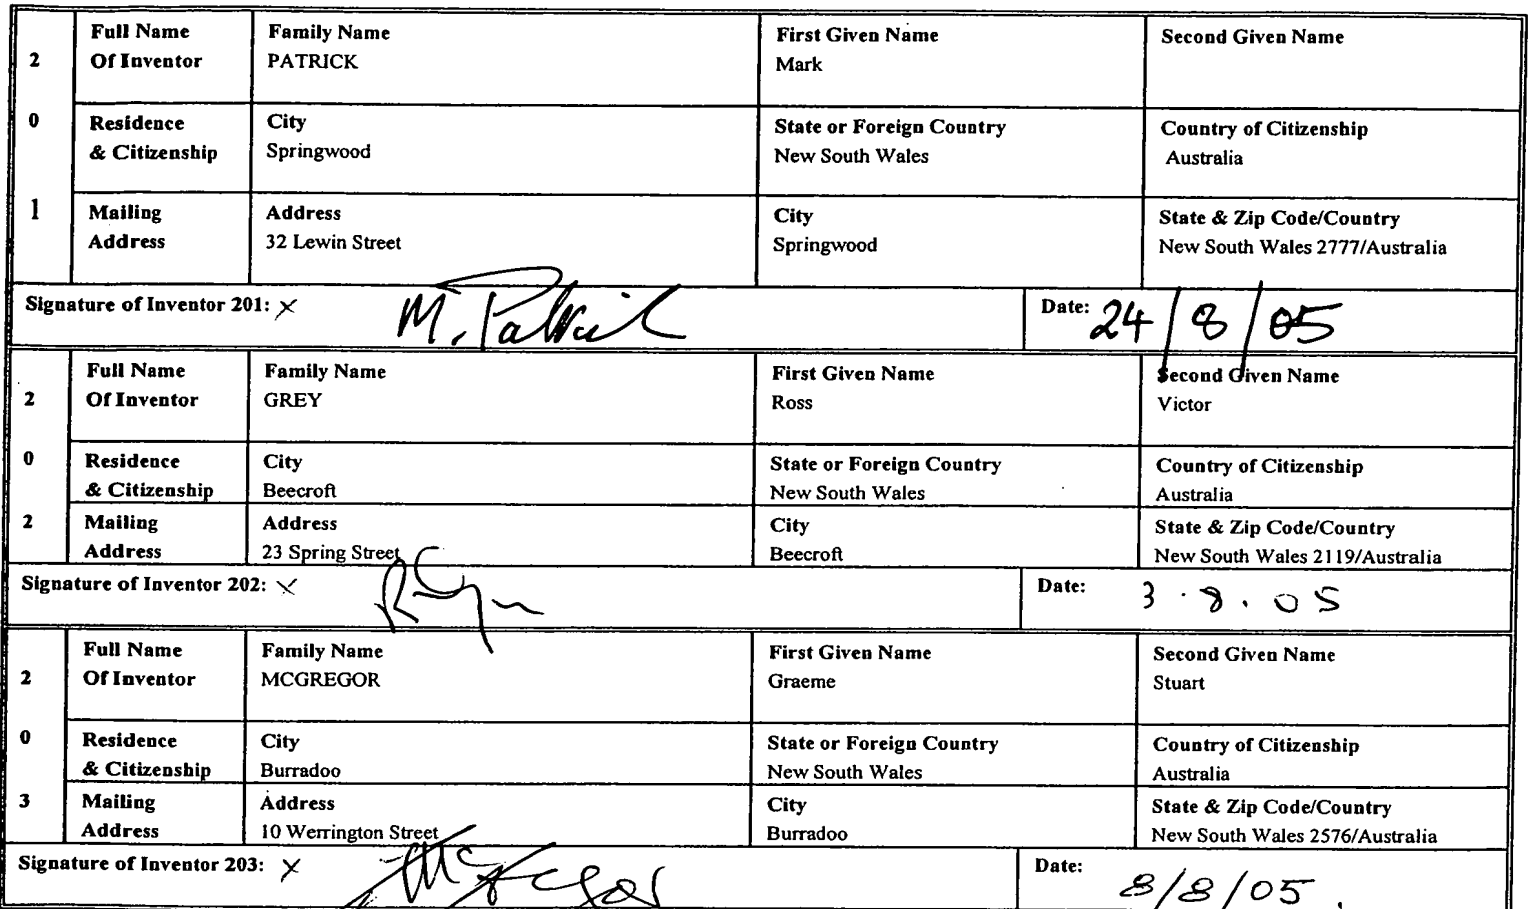 2 Full Name Of Inventor Family Name PATRICK First Given Name Mark Second Given Name
0 Residence & Citizenship City Springwood State or Foreign Country New South Wales Country of Citizenship Australia
1 Mailing Address Address 32 Lewin Street City Springwood State & Zip Code/Country New South Wales 2777/Australia
Signature of Inventor 201: X M. Patrick Date: 24/8/05
2 Full Name Of Inventor Family Name GREY First Given Name Ross Second Given Name Victor
0 Residence & Citizenship City Beecroft State or Foreign Country New South Wales Country of Citizenship Australia
2 Mailing Address Address 23 Spring Street City Beecroft State & Zip Code/Country New South Wales 2119/Australia
Signature of Inventor 202: X Date: 3.8.05
2 Full Name Of Inventor Family Name MCGREGOR First Given Name Graeme Second Given Name Stuart
0 Residence & Citizenship City Burradoo State or Foreign Country New South Wales Country of Citizenship Australia
3 Mailing Address Address 10 Werrington Street City Burradoo State & Zip Code/Country New South Wales 2576/Australia
Signature of Inventor 203: X Date: 8/8/05